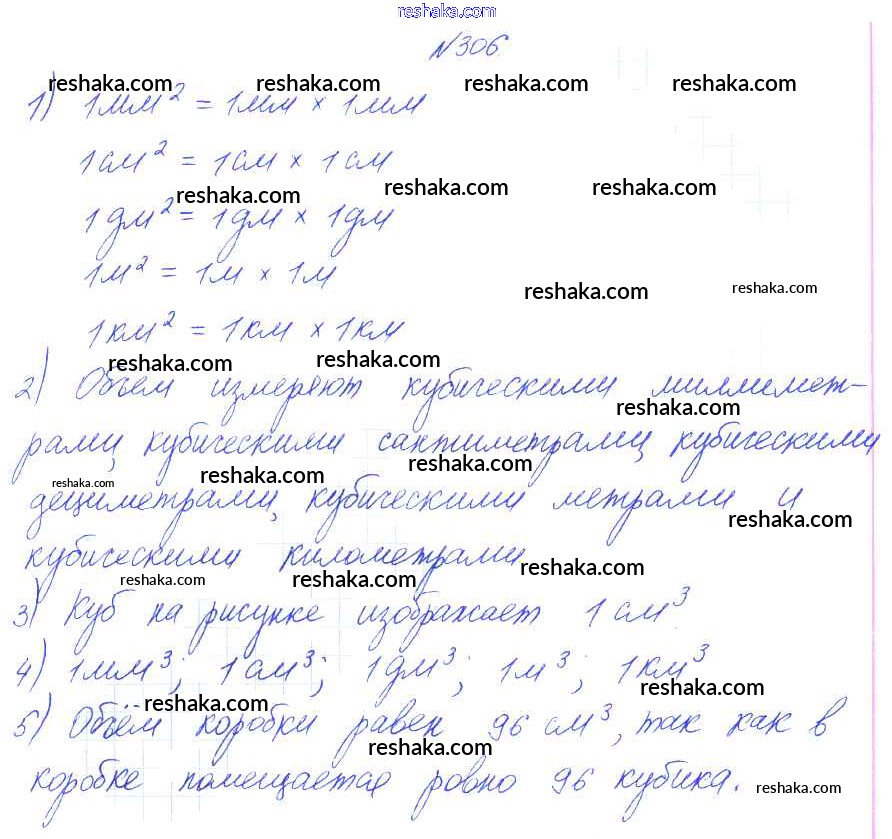 reshaka.com
№306.
reshaka.com reshaka.com reshaka.com reshaka.com
1) 1мм² = 1мм × 1мм
1см² = 1см × 1см
reshaka.com reshaka.com reshaka.com
1дм² = 1дм × 1дм
1м² = 1м × 1м
reshaka.com reshaka.com
1км² = 1км × 1км
reshaka.com reshaka.com
2) Объём измеряют кубическими миллимет-
reshaka.com
рами, кубическими сантиметрами, кубическими
reshaka.com reshaka.com reshaka.com
дециметрами, кубическими метрами и
reshaka.com
кубическими километрами.
reshaka.com reshaka.com reshaka.com
3) Куб на рисунке изображает 1 см³.
4) 1мм³; 1см³; 1дм³; 1м³; 1км³
reshaka.com reshaka.com
5) Объём коробки равен 96 см³, так как в
reshaka.com
коробке помещается ровно 96 кубика.
reshaka.com